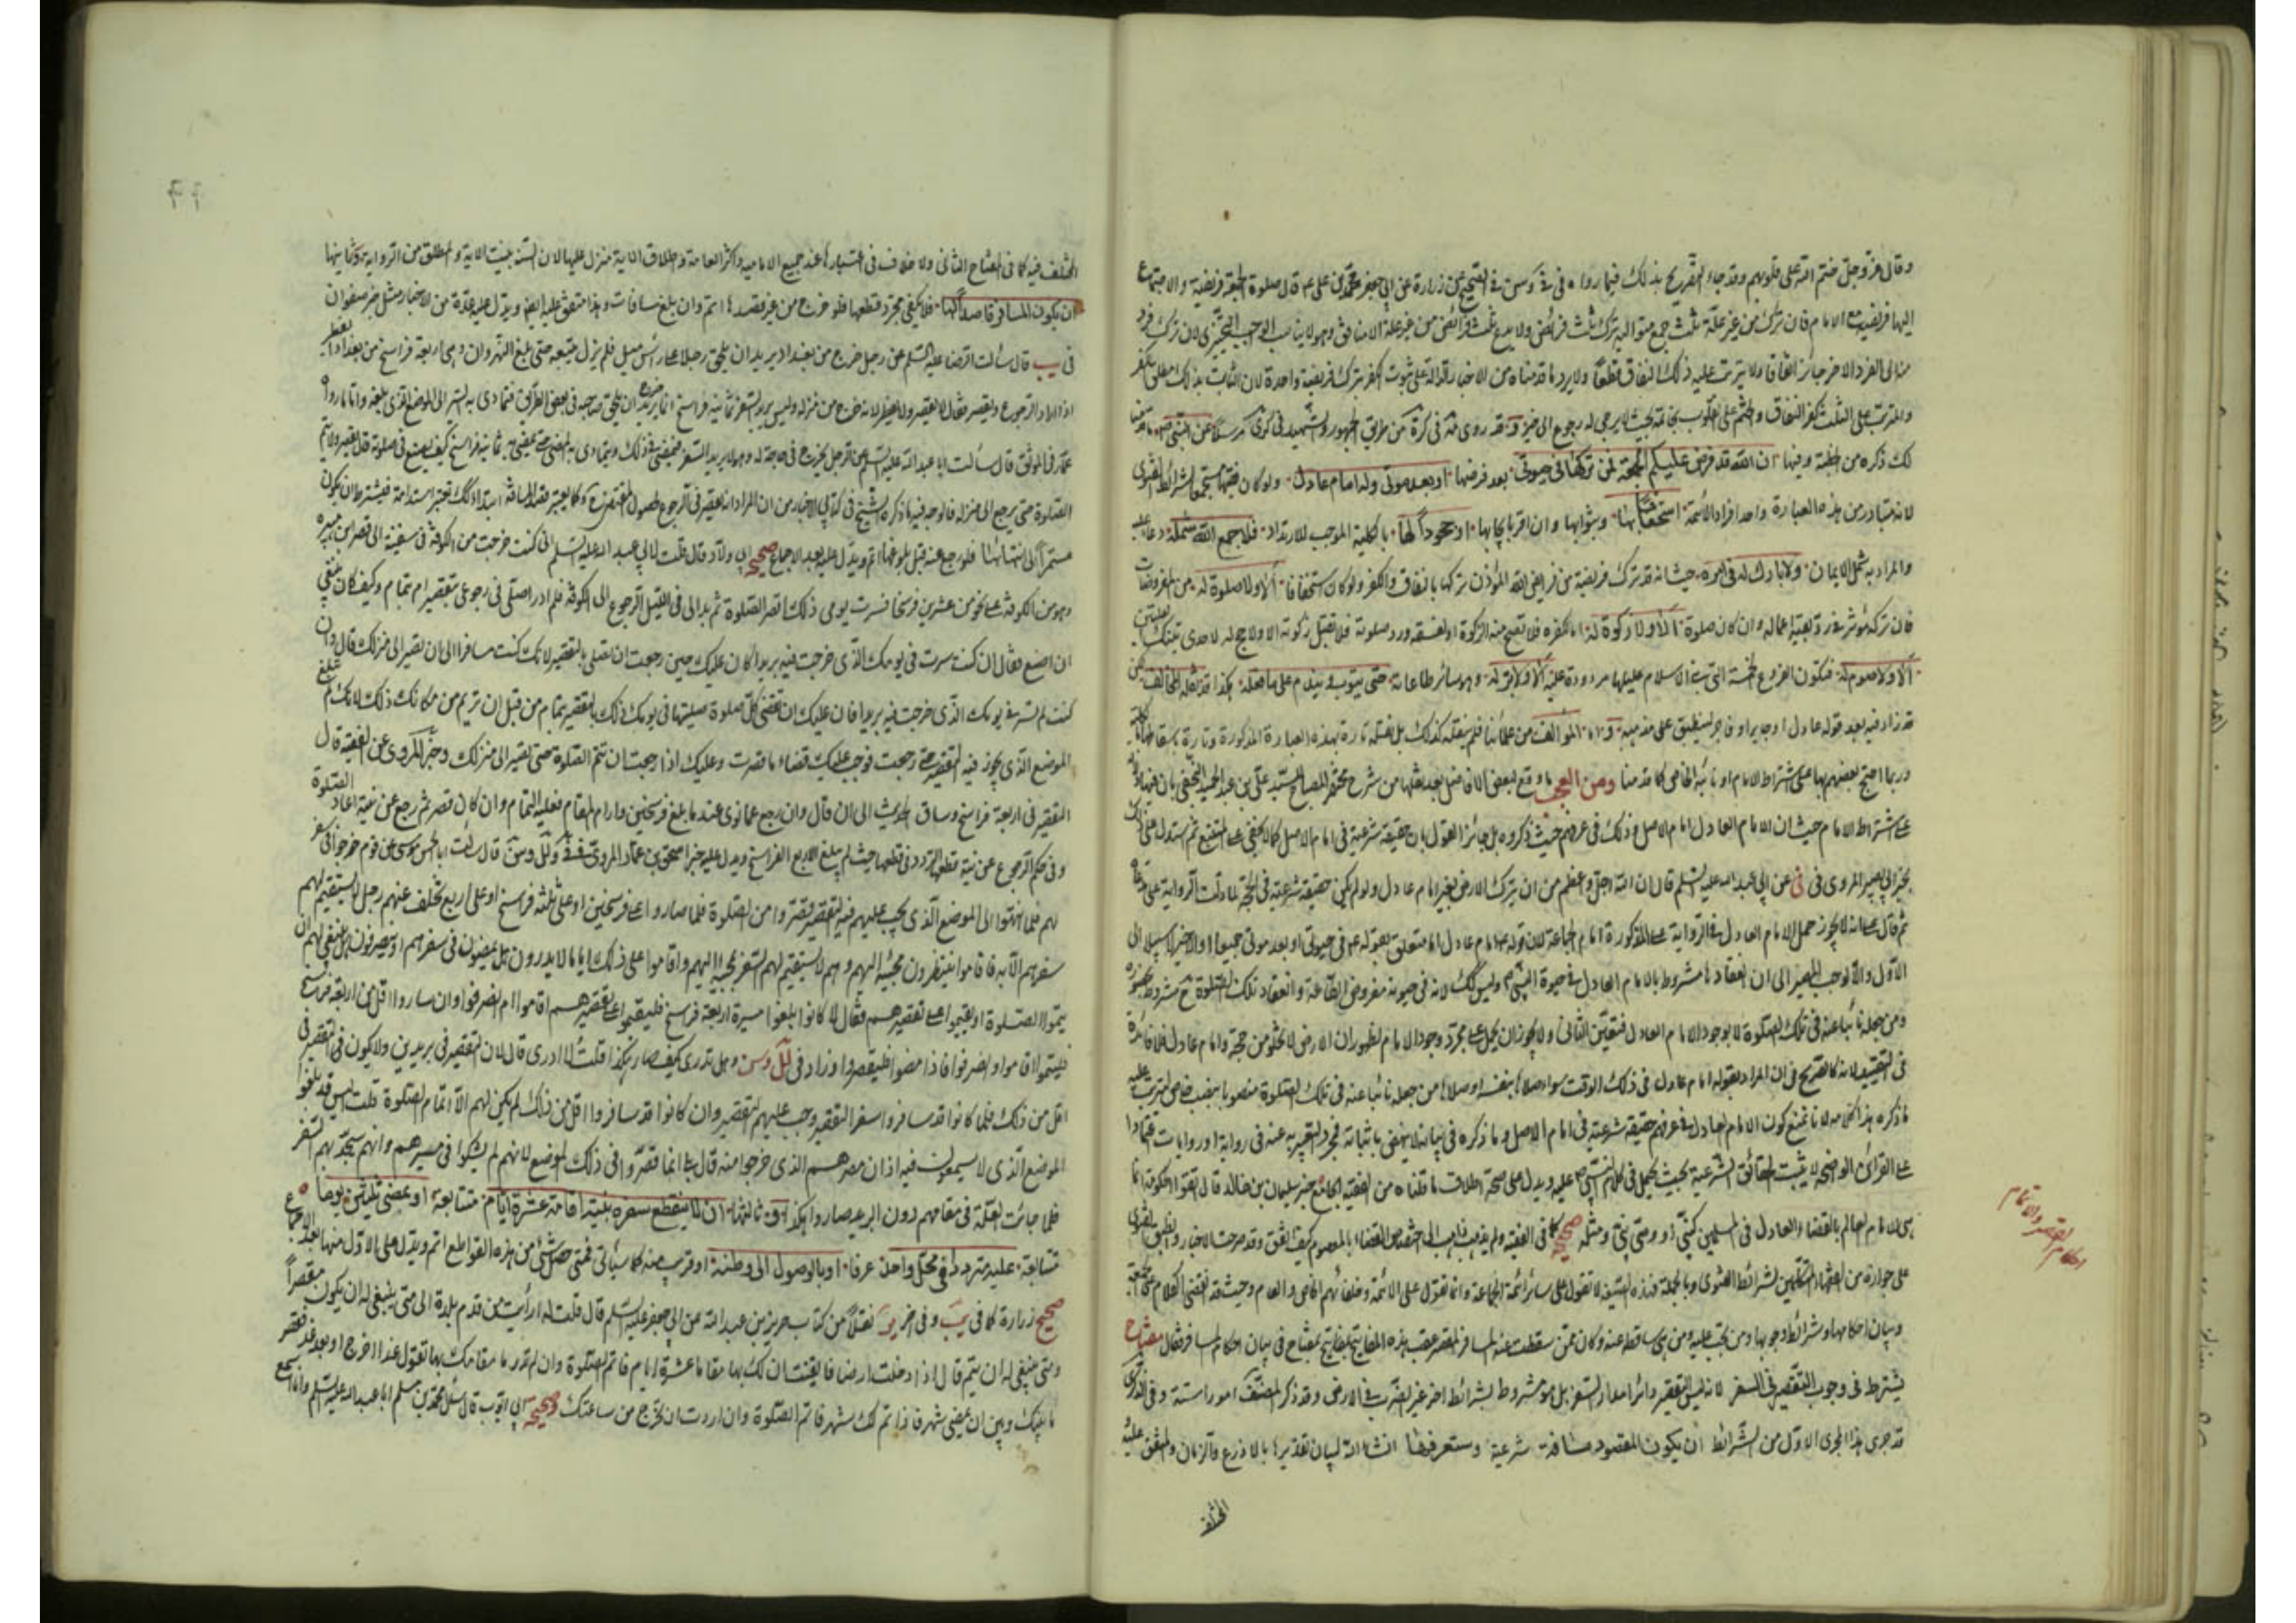 وقال عز وجل ختم الله على قلوبهم وقد جاء التصريح بذلك فيما رواه في في الصحيح عن زرارة عن ابي جعفر محمد بن علي ع قال صلوة الجمعة فريضة والاجتماع
اليها فريضة مع الامام فان ترك من غير علة ثلث جمع متوالية ترك ثلث فرائض ولا يدع ثلث فرائض من غير علة الا منافق وهو لا يناسب الوجوب التخييري لان ترك فرد
منه الى الفرد الاخر جائز اتفاقا ولا يترتب عليه ذلك النفاق قطعا ولا يرد ما قدمناه من الاخبار الدالة على ثبوت الكفر بترك فريضة واحدة لان الثابت بذلك مطلق الكفر
والمترتب على الثلث كفر النفاق والختم على القلوب بخاتمة بحيث لا يرجى له رجوع الى خير وقد روى من طريق الجمهور والشهيد في كرى مرسلا عن النبي
لك ذكره من خطبة وفيها ان الله قد فرض عليكم الجمعة فمن تركها في حيوتي بعد فرضها او بعد موتي وله امام عادل ولو كان فقيها مستجمعا لشرائط الفتوى
لانه متبادر من هذه العبارة واحد افراد الائمة استخفافا بها وبثوابها وان اقر بايجابها او جحودا لها بالكلية الموجب للارتداد فلا جمع الله شمله دعاء عليه
والمراد به شمل الايمان ولا بارك له في امره حيث انه قد ترك فريضة من فرايض الله المؤذن تركها بالنفاق والكفر ولو كان استخفافا الا ولا صلوة له من المفروضات
فان تركه مؤثر في رد بقية اعماله وان كان صلوة الا ولا زكوة له اما لكفره فلا تصح منه الزكوة او لفسقه ورد صلوته فلا تقبل زكوته الا ولا حج له لاحدى تينك العلتين
الا ولا صوم له فتكون الفروع الخمسة التي بني الاسلام عليها مردودة عليه الا ولا بر له وهو سائر طاعاته حتى يتوب ويندم على ما فعله هكذا قد نقله المخالف لكن
قد زاد فيه بعد قوله عادل او جاير او فاجر لينطبق على مذهبه واما المؤالف من علمائنا فلم ينقله كذلك بل نقله تارة بهذه العبارة المذكورة وتارة باسقاطها
وربما احتج بعضهم بها على اشتراط الامام او نائبه الخاص كما قدمنا ومن العجب ما وقع لبعض الافاضل بعد نقلها من شرح مختصر المصباح للسيد علي بن عبد الحميد النجفي بان فيها دلالة
على اشتراط الامام حيث ان الامام العادل امام الاصل وذلك في عرفهم حيث ذكروه بل جائز القول بان حقيقة شرعية في امام الاصل كما لا يخفى على المتتبع ثم استدل على ذلك
بخبر ابي بصير المروى في في عن ابي عبد الله عليه السلام قال ان الله اجل واعظم من ان يترك الارض بغير امام عادل ولو لم يكن حقيقة شرعية في الحجة لما دلت الرواية على
ثم قال على انه لا يجوز حمل الامام العادل في الرواية المذكورة على امام الجماعة لان قوله امام عادل اما متعلق بقوله ع في حيوتي او بعد موتي جميعا او الاخير لا سبيل الى
الاول والا لوجب المصير الى ان انعقادها مشروط بالامام العادل في حيوة النبي ص وليس كك لانه في حيوته مفروض الطاعة وانعقاد تلك الصلوة ح مشروط بحضوره
ومن جعله نائبا عنه في تلك الصلوة لا بوجود الامام العادل فتعين الثاني ولا يجوز ان يحمل على مجرد وجود الامام لظهور ان الارض لا تخلو من حجة وامام عادل فلا فائدة
في التقييد لانه كالصريح في ان المراد بقوله امام عادل في ذلك الوقت سواء صلاها بنفسه او صلاها من جعله نائبا عنه في تلك الصلوة منصوبا بنصب خاص ليترتب عليه
ما ذكره هذا كلامه لانا نمنع كون الامام العادل في عرفهم حقيقة شرعية في امام الاصل وما ذكره في بيانه لا ينهض باثباته فمجرد التعبير به عنه في رواية او روايات اعتمادا
على القرائن الواضحة لا يثبت الحقائق الشرعية بحيث يحمل في كلام النبي ص عليه ويدل على صحة اطلاق ما قلناه من الفقيه الجامع خبر سليمان بن خالد قال اتقوا الحكومة انما
هي للامام العالم بالقضاء العادل في المسلمين كنبي او وصي نبي ومثله صحيحه كما في الفقيه ولم يذهب ذاهب الى اختصاص القضاء بالمعصوم كيف اتفق وقد صرحت الاخبار وانطبق الفتوى
على جوازه من الفقهاء المستكملين لشرائط الفتوى وبالجملة فهذه العقيقة لا تقول على سائر ائمة الجماعة وانما تقول على الائمة وخلفائهم الخاص والعام وحيث قد انقضى الكلام على الجمعة
وبيان احكامها وشرائط وجوبها ومن تجب عليه ومن هي ساقطة عنه وكان ممن سقطت عنه المسافر المقصر عقب هذه المفاتيح بمفتاح في بيان احكام المسافر فقال مفتاح
يشترط في وجوب التقصير في السفر لانه ليس التقصير دائرا مدار السفر بل هو مشروط بشرائط اخر غير الضرب في الارض وقد ذكر المصنف امورا ستة وفي الذكرى
قد جرى هذا المجرى الاول من الشرائط ان يكون المقصود مسافة شرعية وستعرفها انشاء الله لبيان تقديرها بالاذرع والزمان والمتفق عليه
المختلف
احكام القصر والاتمام
المختلف فيه كما في المفتاح الثاني ولا خلاف في اعتبارها عند جميع الامامية واكثر العامة واطلاق الاية منزل عليها لان السنة بينت الاية والمطلق من الرواية وثانيها
ان يكون المسافر قاصدا لها فلا يكفي مجرد قطعها فلو خرج من غير قصدها اتم وان بلغ مسافات وهذا متفق عليه ايضا ويدل عليه عدة من الاخبار مثل خبر صفوان
في يب قال سألت الرضا عليه السلم عن رجل خرج من بغداد يريد ان يلحق رجلا على رأس ميل فلم يزل يتبعه حتى بلغ النهروان وهي اربعة فراسخ من بغداد ايفطر
اذا اراد الرجوع ويقصر فقال لا يقصر ولا يفطر لانه خرج من منزله وليس يريد السفر ثمانية فراسخ انما خرج يريد ان يلحق صاحبه في بعض الطريق فتمادى به السير الى الموضع الذي بلغه واما ما رواه
عمار في الموثق قال سألت ابا عبد الله عليه السلم عن الرجل يخرج في حاجة له وهو لا يريد السفر فيمضي في ذلك ويتمادى به المضي حتى يمضي به ثمانية فراسخ كيف يصنع في صلوته قال يقصر ولا يتم
الصلوة حتى يرجع الى منزله فالوجه فيه ما ذكره الشيخ في كتابي الاخبار من ان المراد انه يقصر في الرجوع لحصول المقتضى وكما يعتبر قصد المسافة ابتداء كك تعتبر استدامة فيشترط ان يكون
مستمرا الى انتهائها فلو رجع عنه قبل بلوغها اتم ويدل عليه بعد الاجماع صحيح ابي ولاد قال قلت لابي عبد الله عليه السلم اني كنت خرجت من الكوفة في سفينة الى قصر ابن هبيرة
وهو من الكوفة على نحو من عشرين فرسخا فسرت يومي ذلك اقصر الصلوة ثم بدا لي في الليل الرجوع الى الكوفة فلم ادر اصلي في رجوعي بتقصير ام بتمام وكيف كان ينبغي
ان اصنع فقال ان كنت سرت في يومك الذي خرجت فيه بريدا كان عليك حين رجعت ان تصلي بالتقصير لانك كنت مسافرا الى ان تصير الى منزلك قال وان
كنت لم تسر في يومك الذي خرجت فيه بريدا فان عليك ان تقضي كل صلوة صليتها في يومك ذلك بالتقصير بتمام من قبل ان تريم من مكانك ذلك لانك لم تبلغ
الموضع الذي يجوز فيه التقصير حتى رجعت فوجب عليك قضاء ما قصرت وعليك اذا رجعت ان تتم الصلوة حتى تصير الى منزلك وخبر المروزى عن الفقيه قال
التقصير في اربعة فراسخ وساق الحديث الى ان قال وان رجع عما نوى عند ما بلغ فرسخين واراد المقام فعليه التمام وان كان قصر ثم رجع عن نيته اعاد الصلوة
وفي حكم الرجوع عن نية قطعها التردد في قطعها حيث لم يبلغ الاربع الفراسخ ويدل عليه خبر اسحق بن عمار المروى في في ولل وسن قال سألت ابا الحسن موسى ع عن قوم خرجوا في سفر
لهم فلما انتهوا الى الموضع الذي يجب عليهم فيه التقصير قصروا من الصلوة فلما صاروا على فرسخين او على ثلثة فراسخ او على اربع تخلف عنهم رجل لا يستقيم لهم
سفرهم الا به فاقاموا ينتظرون مجيئه اليهم وهم لا يستقيم لهم السفر الا بمجيئه اليهم واقاموا على ذلك اياما لا يدرون هل يمضون في سفرهم او ينصرفون هل ينبغي لهم ان
يتموا الصلوة او يقيموا على تقصيرهم فقال ان كانوا بلغوا مسيرة اربعة فراسخ فليقيموا على تقصيرهم اقاموا ام انصرفوا وان ساروا اقل من اربعة فراسخ
فليتموا اقاموا او انصرفوا فاذا مضوا فليقصروا وزاد في لل وسن وهل تدرى كيف صار هكذا قلت لا ادرى قال لان التقصير في بريدين ولا يكون التقصير في
اقل من ذلك فلما كانوا قد سافروا بريدا وارادوا ان ينصرفوا كانوا قد سافروا سفر التقصير وان كانوا قد سافروا اقل من ذلك لم يكن لهم الا اتمام الصلوة قلت اليس قد بلغوا
الموضع الذي لا يسمعون فيه اذان مصرهم الذي خرجوا منه قال بلى انما قصروا في ذلك الموضع لانهم لم يشكوا في مسيرهم وانهم سيجد بهم السفر
فلما جائت العلة في مقامهم دون البريد صاروا هكذا وثالثها ان لا ينقطع سفره بنية اقامة عشرة ايام متتابعة او بمضي ثلثين يوما
متتابعة عليه مترددا في محل واحد عرفا او بالوصول الى وطنه او قرب منه كما سيأتي فمتى حصل شئ من هذه القواطع اتم ويدل على الاول منها بعد الاجماع
صحيح زرارة كما في يب وفي اخر نقلا من كتاب حريز بن عبد الله عن ابي جعفر عليه السلم قال قلت له ارأيت من قدم بلدة الى متى ينبغي له ان يكون مقصرا
ومتى ينبغي له ان يتم قال اذا دخلت ارضا فايقنت ان لك بها مقاما عشرة ايام فاتم الصلوة وان لم تدر ما مقامك بها تقول غدا اخرج او بعد غد فقصر
ما بينك وبين ان يمضي شهر فاذا تم لك شهر فاتم الصلوة وان اردت ان تخرج من ساعتك وصحيحة ابي ايوب قال سئل محمد بن مسلم ابا عبد الله عليه السلم وانا اسمع